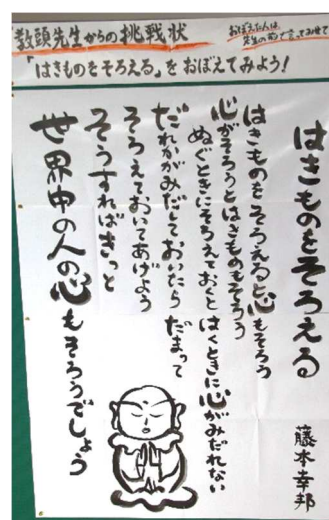 教頭先生からの挑戦状
おぼえた人は、
先生の前で言ってみせて
「はきものをそろえる」を おぼえてみよう！
はきものをそろえる
藤本幸邦
はきものをそろえると心もそろう
心がそろうとはきものもそろう
ぬぐときにそろえておくと はくときに心がみだれない
だれかがみだしておいたら だまって
そろえておいてあげよう
そうすればきっと
世界中の人の心もそろうでしょう